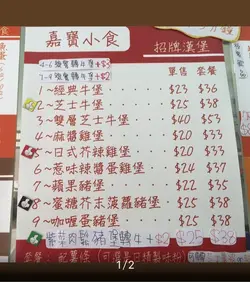 嘉寶小食
招牌漢堡
單售 套餐
1~經典牛堡 $23 $36
2~芝士牛堡 $25 $38
3~雙層芝士牛堡 $40 $53
4~麻醬雞堡 $20 $33
5~日式芥辣雞堡 $20 $33
6~惹味辣醬蛋雞堡 $24 $37
7~蘋果豬堡 $22 $35
8~蜜糖芥末菠蘿豬堡 $25 $38
9~咖喱蛋豬堡 $25 $38
紫菜肉鬆豬堡轉牛+$2 $25 $38
套餐: 配薯條
1/2